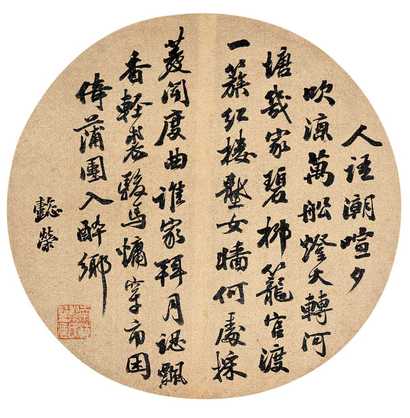 人語潮喧夕
吹凉萬舩燈火轉河
塘幾家碧柳籠官渡
一簇紅樓壓女墻何處採
菱聞度曲誰家拜月認飄
香輕裘駿馬慵穿市困
倚蒲團入醉鄉
懿榮